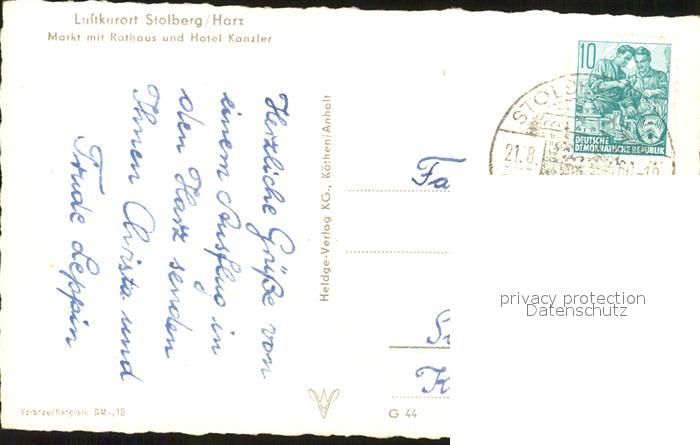 Luftkurort Stolberg/Harz
Markt mit Rathaus und Hotel Kanzler
Herzliche Grüße von
einem Ausflug in
den Harz senden
Ihnen Christa und
Trude Leppin
Heldge-Verlag KG., Köthen/Anhalt
10
DEUTSCHE
DEMOKRATISCHE REPUBLIK
STOLB
21.8.
Fa
K
privacy protection
Datenschutz
Verbraucherpreis DM -,18
G 44